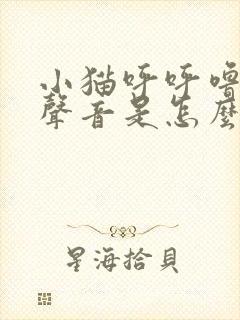 小猫呼呼噜
聲音是怎麼
星海拾貝